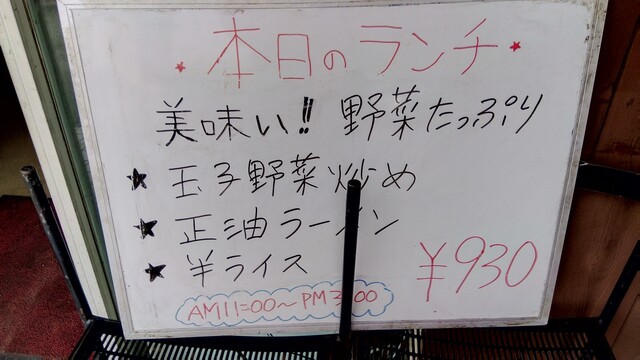 本日のランチ
美味い!! 野菜たっぷり
★ 玉子野菜炒め
★ 正油ラーメン
★ 半ライス
¥930
AM11:00～PM3:00